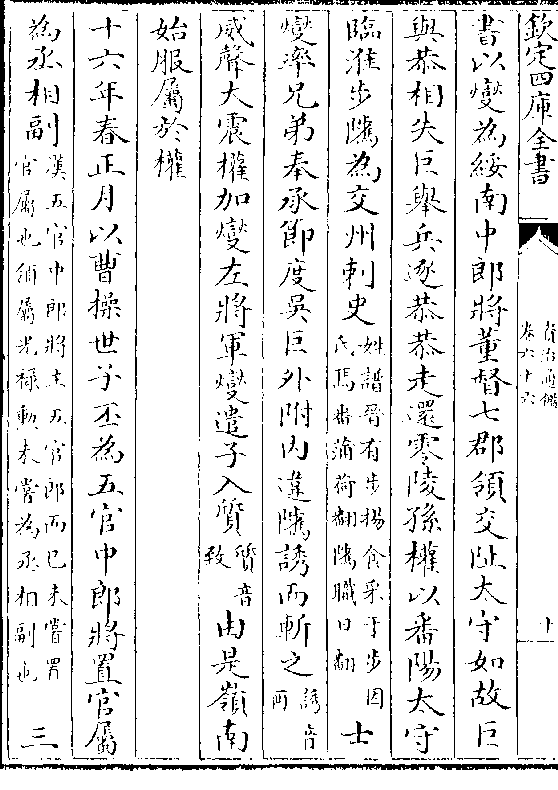 欽定四庫全書
資治通鑑
卷六十六
十
書以燮為綏南中郎將董督七郡領交阯太守如故巨
與恭相失巨舉兵逐恭恭走還零陵孫權以番陽太守
臨淮步隲為交州刺史姓譜晉有步揚食采于步因氏焉番蒲荷翻隲職日翻士
燮率兄弟奉承節度吳巨外附内違隲誘而斬之誘音酉
威聲大震權加燮左將軍燮遣子入質質音致由是嶺南
始服屬於權
十六年春正月以曹操世子丕為五官中郎將置官屬
為丞相副漢五官中郎將主五官郎而已未嘗置官屬也領屬光祿勳未嘗為丞相副也三